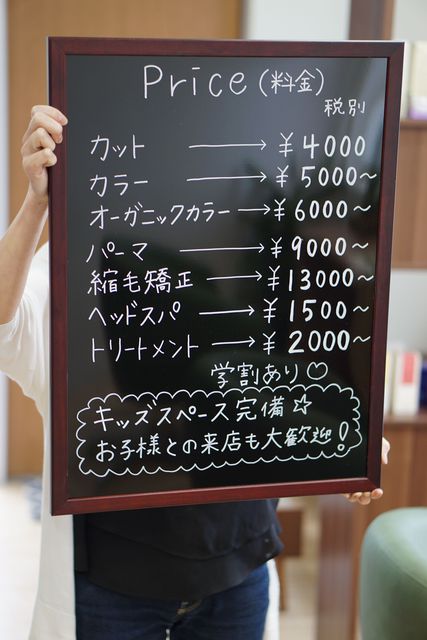 Price (料金)
税別
カット → ¥4000
カラー → ¥5000~
オーガニックカラー → ¥6000~
パーマ → ¥9000~
縮毛矯正 → ¥13000~
ヘッドスパ → ¥1500~
トリートメント → ¥2000~
学割あり♡
キッズスペース完備☆
お子様との来店も大歓迎!